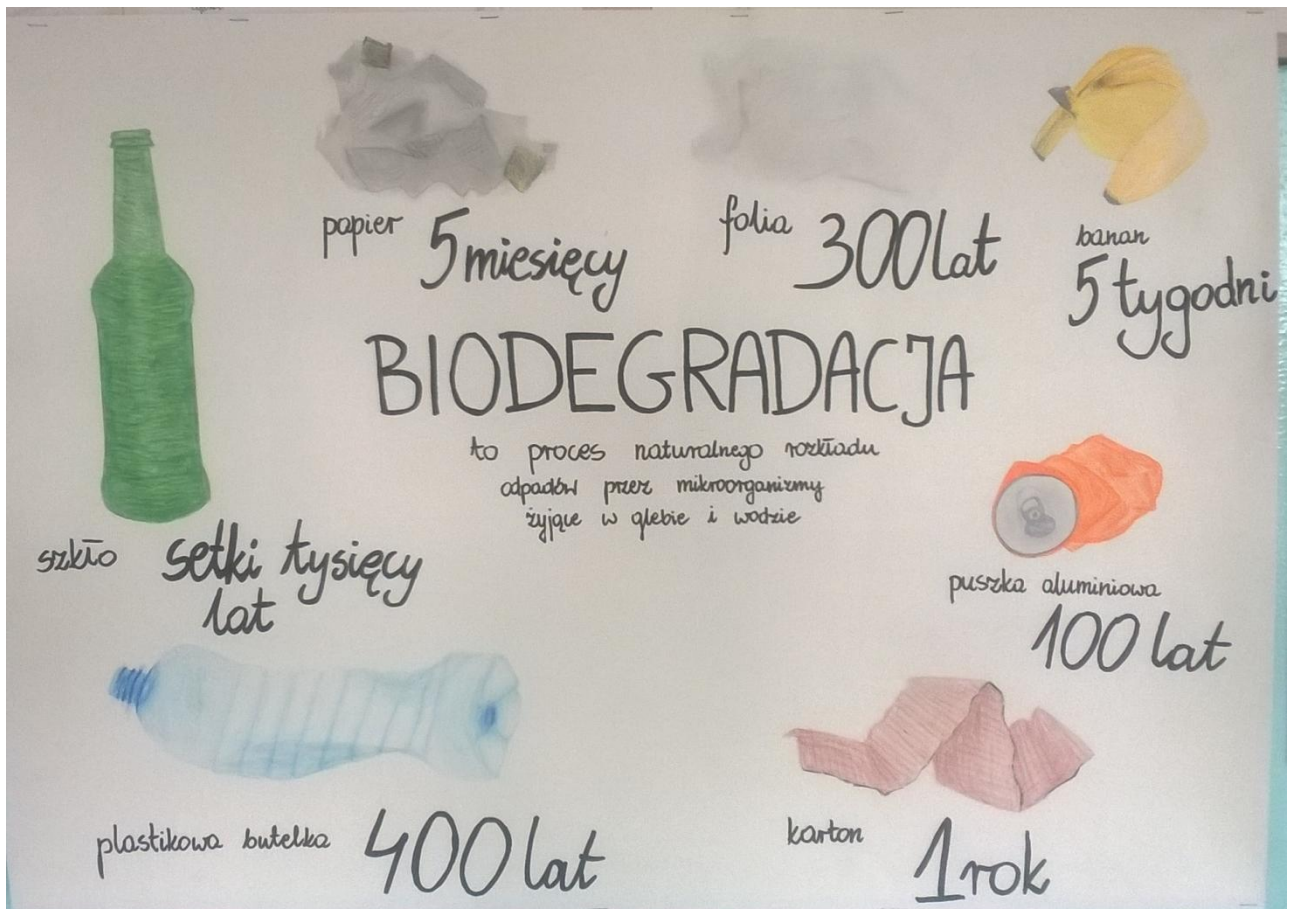 papier 5 miesięcy
folia 300 lat
banan
5 tygodni
BIODEGRADACJA
to proces naturalnego rozkładu
odpadów przez mikroorganizmy
żyjące w glebie i wodzie
szkło setki tysięcy
lat
puszka aluminiowa
100 lat
plastikowa butelka 400 lat
karton 1 rok